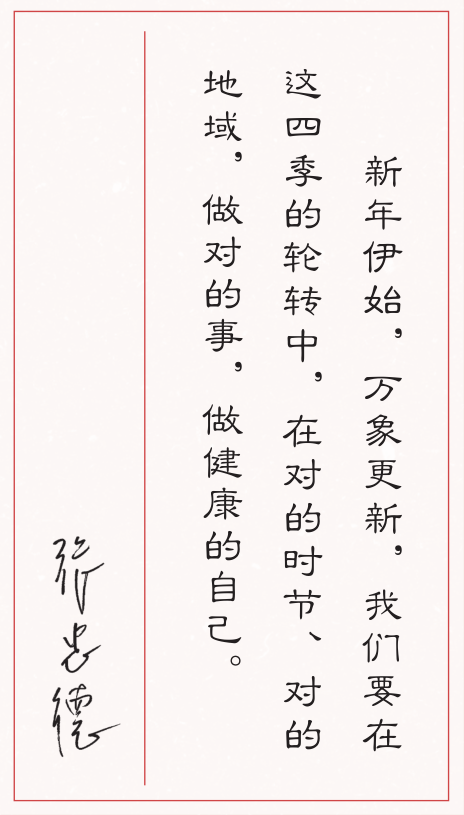 新年伊始，万象更新，我们要在
这四季的轮转中，在对的时节、对的
地域，做对的事，做健康的自己。
张忠德